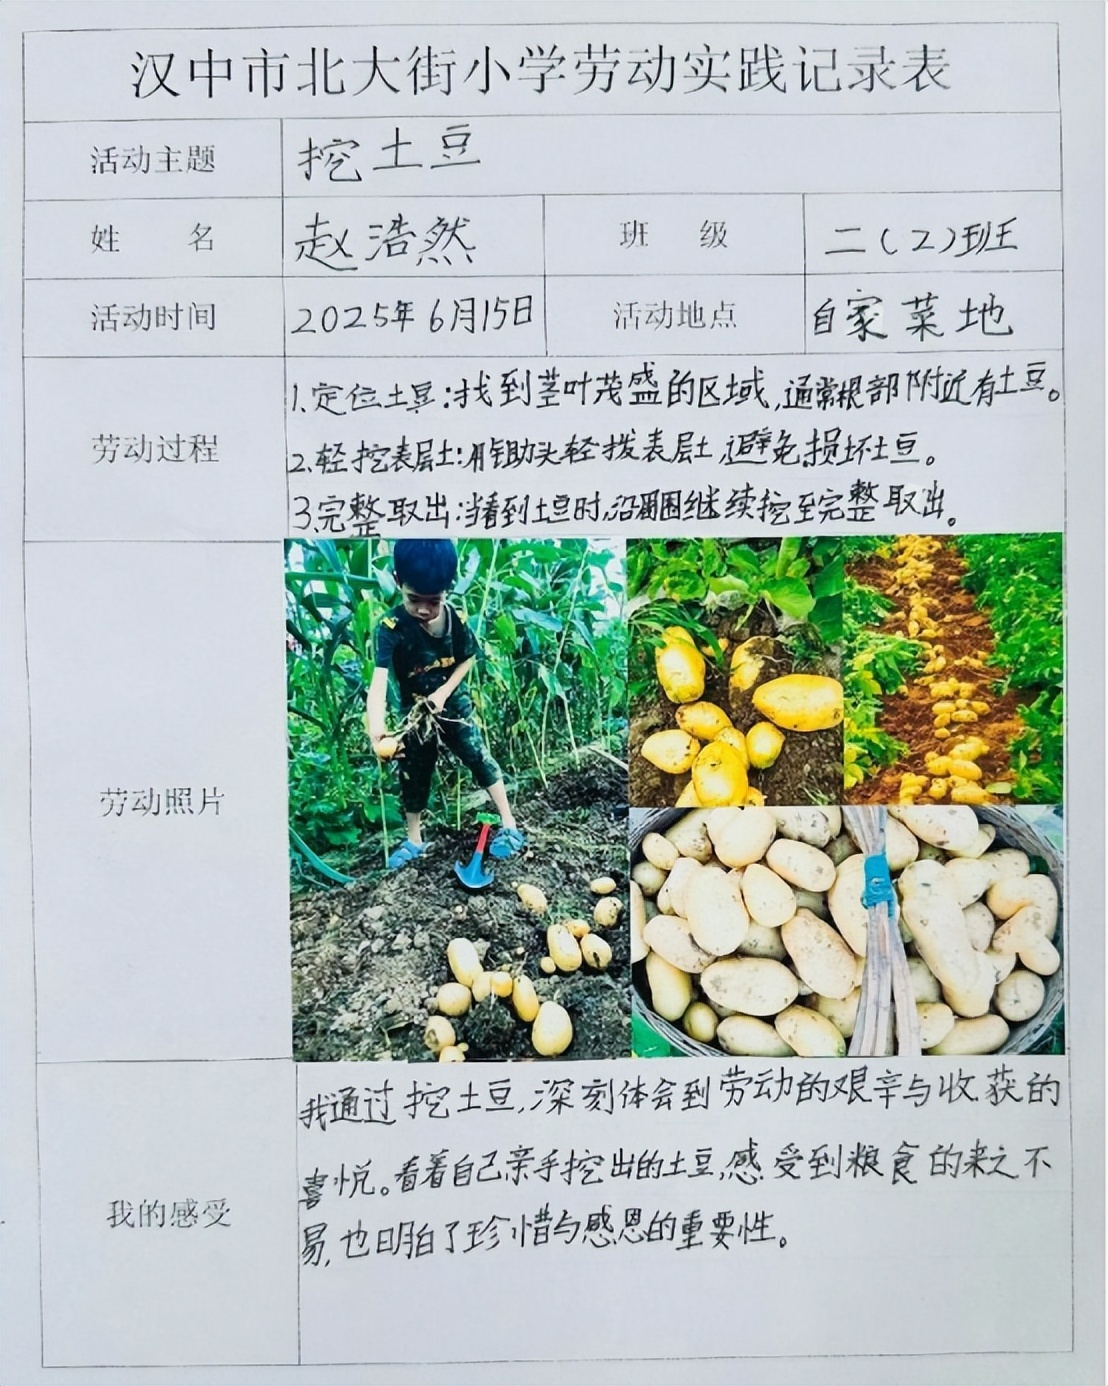 汉中市北大街小学劳动实践记录表
活动主题 挖土豆
姓 名 赵浩然 班 级 二(2)班
活动时间 2025年6月15日 活动地点 自家菜地
劳动过程
1.定位土豆:找到茎叶茂盛的区域,通常根部附近有土豆。
2.轻挖表层土:用锄头轻拨表层土,避免损坏土豆。
3.完整取出:当看到土豆时,沿周围继续挖至完整取出。
劳动照片
我的感受
我通过挖土豆,深刻体会到劳动的艰辛与收获的
喜悦。看着自己亲手挖出的土豆,感受到粮食的来之不
易,也明白了珍惜与感恩的重要性。